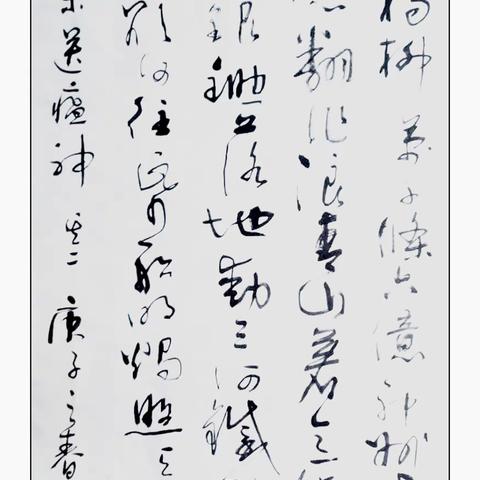 楊柳萬千條六億神州
翻作浪青山著意
銀鋤落地動三河鐵
欲何往紙船明燭照天
送瘟神 其二 庚子之春